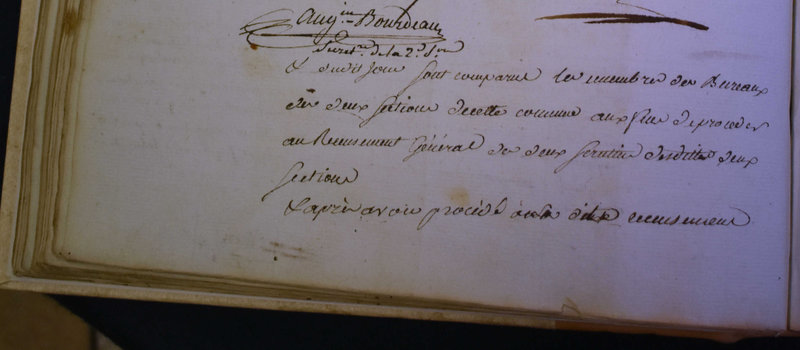 Augin Bourdeau
Secret.re de la 2.e S.on
& dudit jour sont comparus les membres des Bureaux
des deux sections de cette commune aux fins de proceder
au Recensement Général des deux scrutins desdittes deux
sections
& après avoir procédé audit recensement